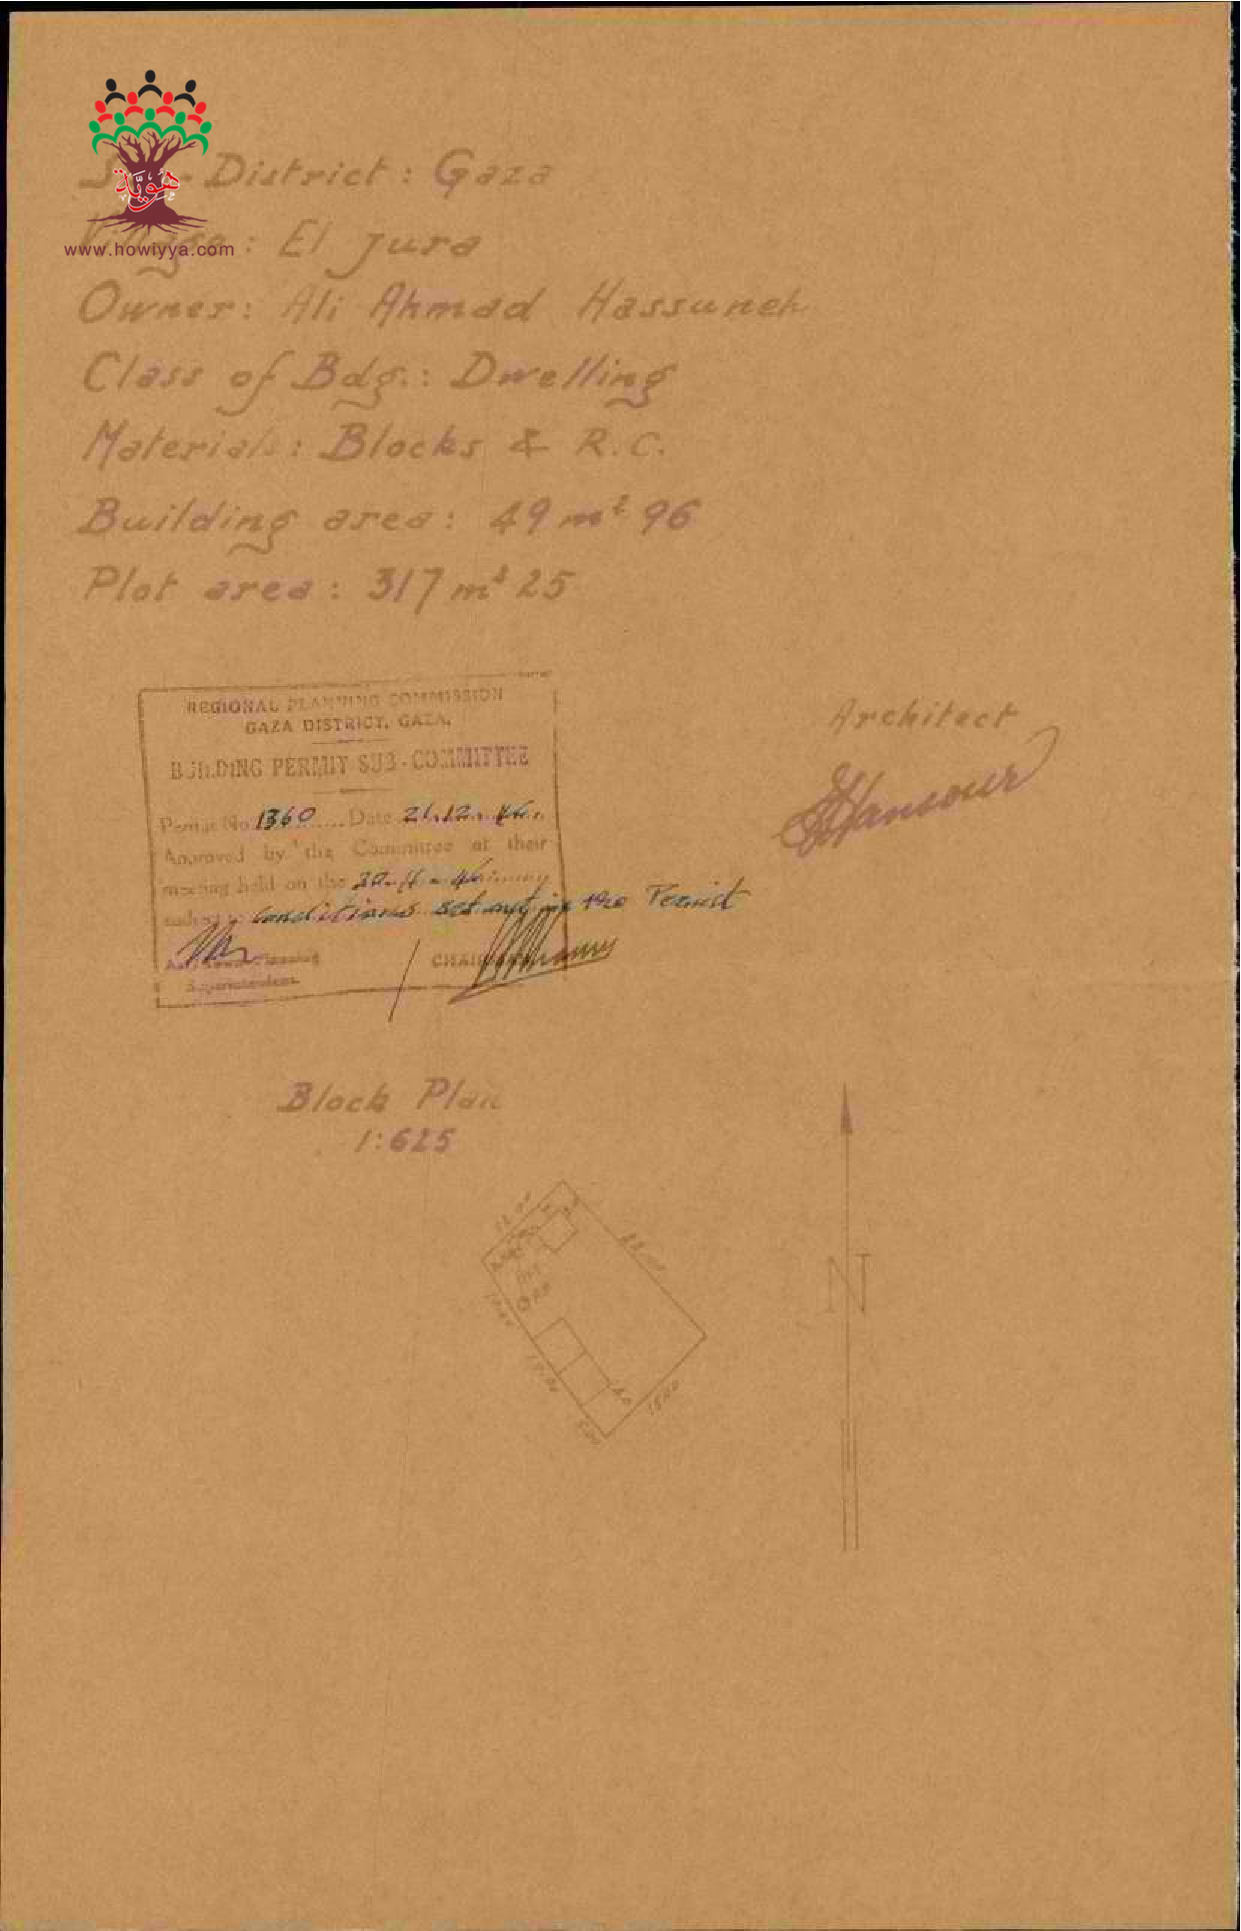 هوية
www.howiyya.com
Sub-District: Gaza
Village: El Jura
Owner: Ali Ahmad Hassuneh
Class of Bdg.: Dwelling
Materials: Blocks & R.C.
Building area: 49 m² 96
Plot area: 317 m² 25
REGIONAL PLANNING COMMISSION
GAZA DISTRICT, GAZA.
BUILDING PERMIT SUB-COMMITTEE
Permit No. 1360 Date 21.12.46.
Approved by the Committee at their
meeting held on the
subject to conditions set out in the Permit
Asst. Town Planning
Superintendent.
CHAIRMAN
Architect
Mansour
Block Plan
1:625
N